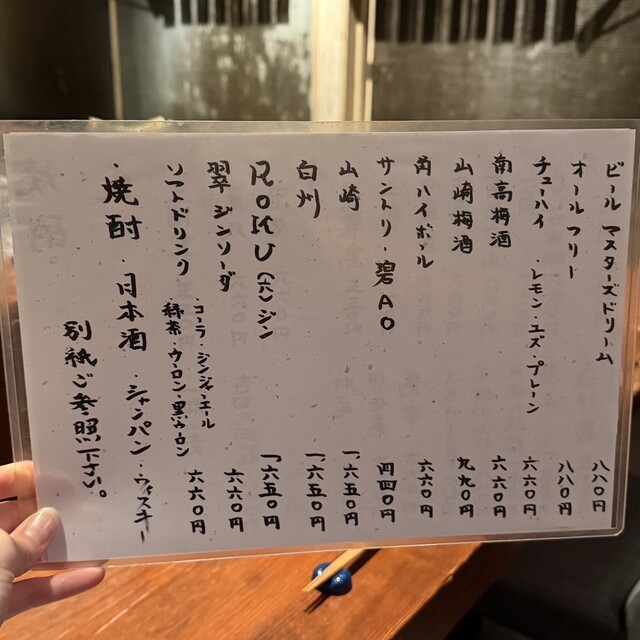 ビール マスターズドリーム 八八〇円
オールフリー 八八〇円
チューハイ ・レモン・ユズ・プレーン 六六〇円
南高梅酒 六六〇円
山崎梅酒 九九〇円
角ハイボール 六六〇円
サントリー碧AO 四四〇円
山崎 一六五〇円
白州 一六五〇円
ROKU(六)ジン 一六五〇円
翠 ジンソーダ 六六〇円
ソフトドリンク ・コーラ ジンジャエール 六六〇円
緑茶 ウーロン・黒ウーロン
・焼酎 ・日本酒 ・シャンパン・ウィスキー
別紙ご参照下さい。